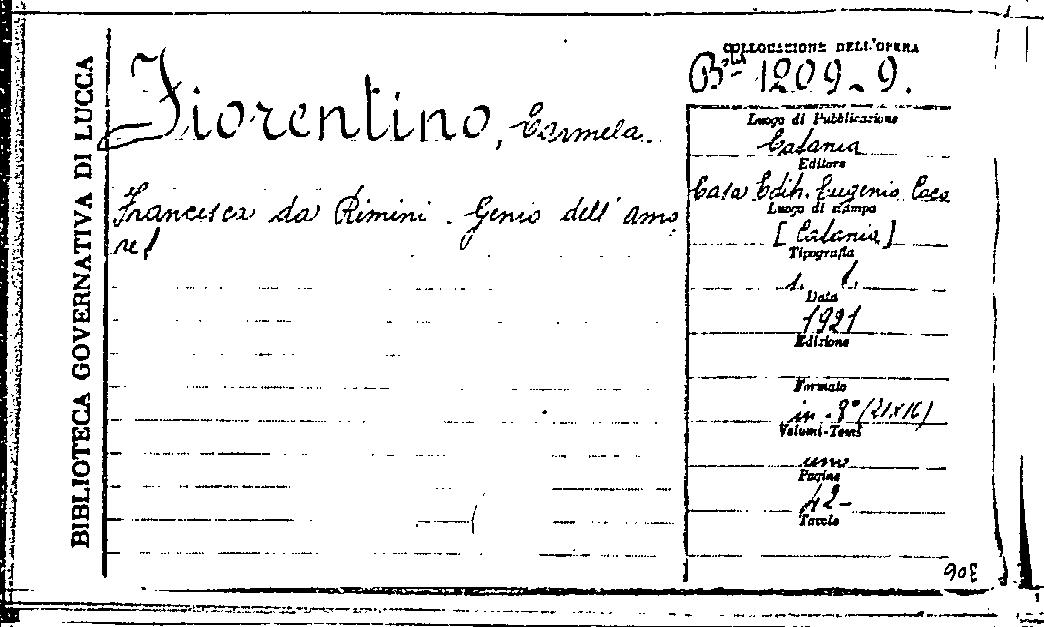 BIBLIOTECA GOVERNATIVA DI LUCCA
Fiorentino, Carmela.
Francesca da Rimini. Genio dell'amo
re!
COLLOCAZIONE DELL'OPERA
Bta 1209-9.
Luogo di Pubblicazione
Catania
Editore
Casa Edit. Eugenio Coco
Luogo di stampa
[Catania]
Tipografia
s. t.
Data
1921
Edizione
Formato
in-8° (21x16)
Volumi-Tomi
uno
Pagine
42-
Tavole
306
1